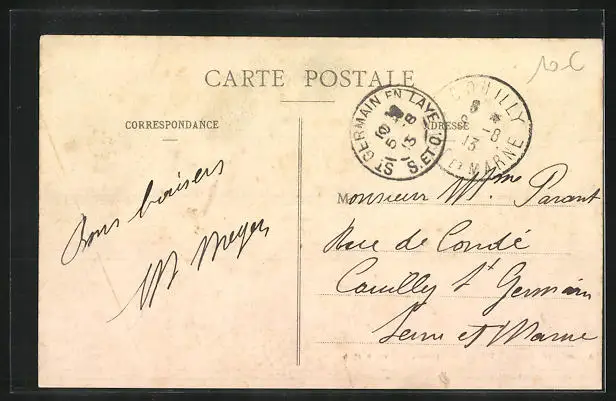 10 C
CARTE POSTALE
CORRESPONDANCE
ADRESSE
ST GERMAIN EN LAYE
10
5 - 8
13
S. ET O.
COUILLY
8 *
6 - 8
13
S. ET MARNE
Bons baisers
Monsieur Mme Parant
Rue de Condé
Couilly St Germain
Seine et Marne